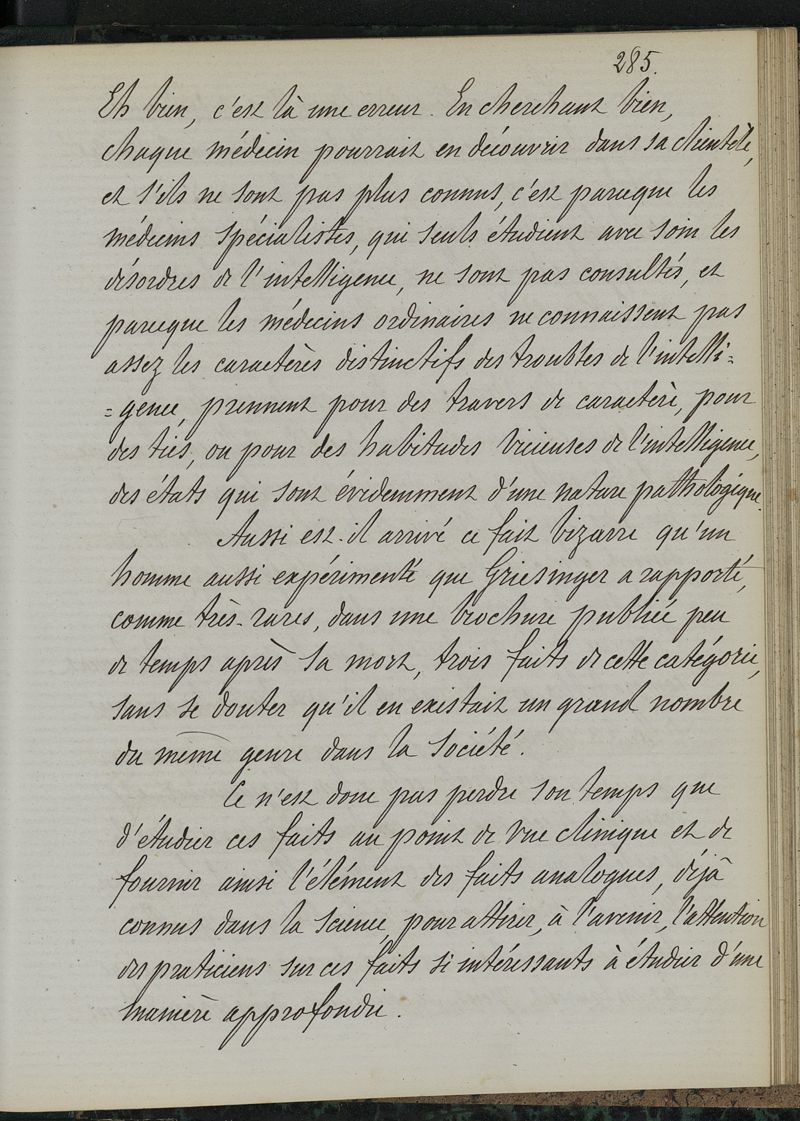 285.
Eh bien, c'est là une erreur. En cherchant bien,
chaque médecin pourrait en découvrir dans sa clientèle,
et s'ils ne sont pas plus connus, c'est parceque les
médecins spécialistes, qui seuls étudient avec soin les
désordres de l'intelligence, ne sont pas consultés, et
parceque les médecins ordinaires ne connaissent pas
assez les caractères distinctifs des troubles de l'intelli=
=gence, prennent pour des travers de caractère, pour
des tics, ou pour des habitudes vicieuses de l'intelligence,
des états qui sont évidemment d'une nature pathologique.
Aussi est-il arrivé ce fait bizarre qu'un
homme aussi expérimenté que Griesinger a rapporté,
comme très-rares, dans une brochure publiée peu
de temps après sa mort, trois faits de cette catégorie,
sans se douter qu'il en existait un grand nombre
du même genre dans la Société.
Ce n'est donc pas perdre son temps que
d'étudier ces faits au point de vue clinique et de
fournir ainsi l'élément des faits analogues, déjà
connus dans la Science, pour attirer, à l'avenir, l'attention
des praticiens sur ces faits si intéressants à étudier d'une
manière approfondie.